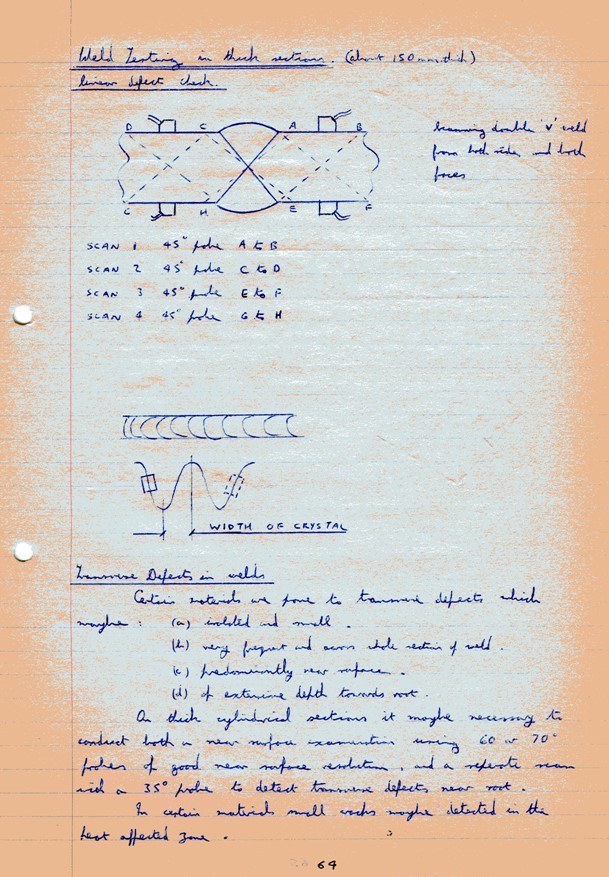 Weld Testing in thick sections. (about 150mm.thick)
linear defect check.
D C A B
G H E F
scanning double 'V' weld
from both sides and both
faces
SCAN 1 45° probe A to B
SCAN 2 45° probe C to D
SCAN 3 45° probe E to F
SCAN 4 45° probe G to H
WIDTH OF CRYSTAL
Transverse Defects in welds
Certain materials are prone to transverse defects which
maybe: (a) isolated and small.
(b) very frequent and across whole section of weld.
(c) predominantly near surface.
(d) of extensive depth towards root.
On thick cylindrical sections it maybe necessary to
conduct both a near surface examination using 60 or 70°
probes of good near surface resolution, and a seperate scan
with a 35° probe to detect transverse defects near root.
In certain materials small cracks maybe detected in the
heat affected zone.
64